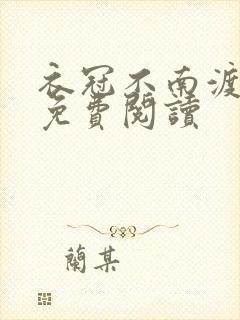 衣冠不南渡
免費閱讀
蘭某